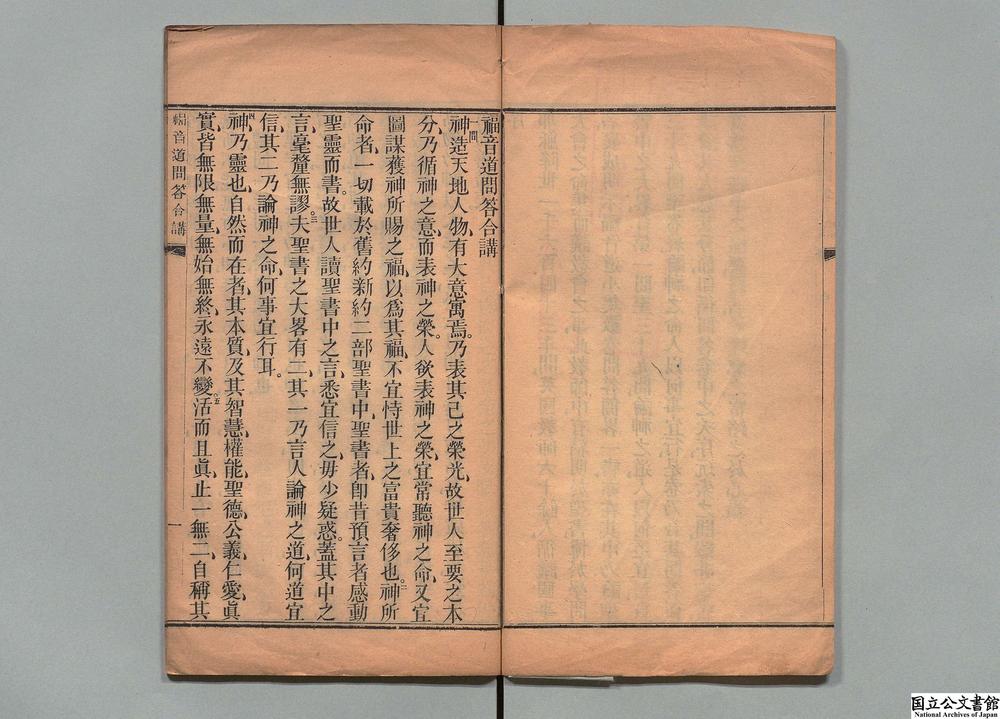 福音道問答合講
一問
神造天地人物、有大意寓焉。乃表其己之榮光、故世人至要之本
分、乃循神之意、而表神之榮。人欲表神之榮、宜常聽神之命、又宜
圖謀獲神所賜之福、以爲其福、不宜恃世上之富貴奢侈也。二神所
命者、一切載於舊約新約二部聖書中、聖書者、卽昔預言者感動
聖靈而書。故世人讀聖書中之言、悉宜信之、毋少疑惑。蓋其中之
言、毫釐無謬。三夫聖書之大畧有二、其一乃言人論神之道、何道宜
信、其二乃論神之命、何事宜行耳。
四神乃靈也、自然而在者、其本質、及其智慧、權能、聖德、公義、仁愛、眞
實、皆無限無量、無始無終、永遠不變。五活而且眞、止一無二、自稱其
福音道問答合講
一
国立公文書館
National Archives of Japan